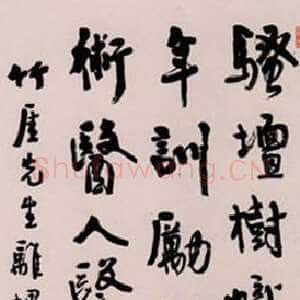 騷壇樹
年訓勵
術醫人醫
竹厓先生
Shufawang.CN